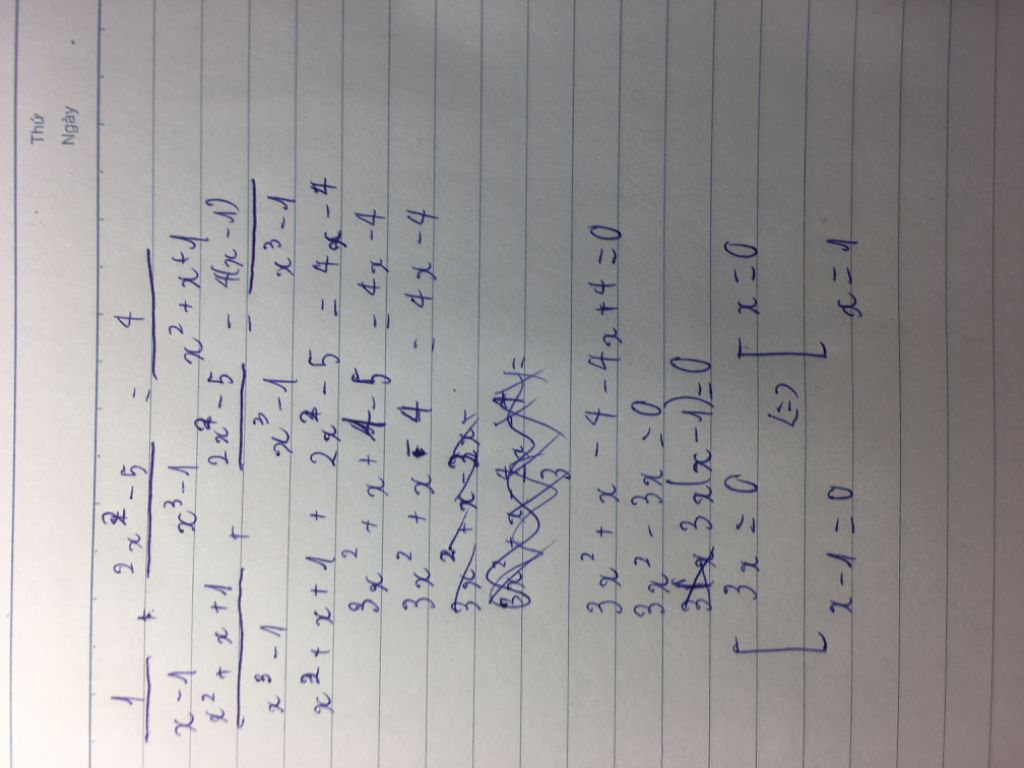 Thứ
Ngày
1/(x-1) + (2x²-5)/(x³-1) = 4/(x²+x+1)
(x²+x+1)/(x³-1) + (2x²-5)/(x³-1) = 4(x-1)/(x³-1)
x²+x+1 + 2x²-5 = 4x-4
3x²+x+1-5 = 4x-4
3x²+x-4 = 4x-4
3x²+x-4-4x+4=0
3x²-3x=0
3x(x-1)=0
[ 3x=0 (=) [ x=0
x-1=0 x=1